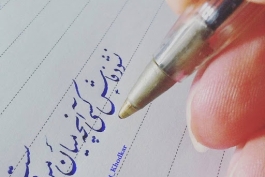 نشود فاش کسی آنچه میان من
Khodkar